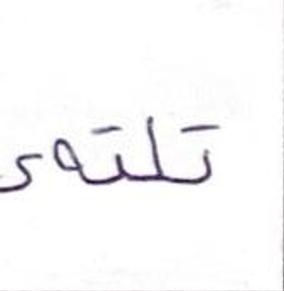 تلتەی